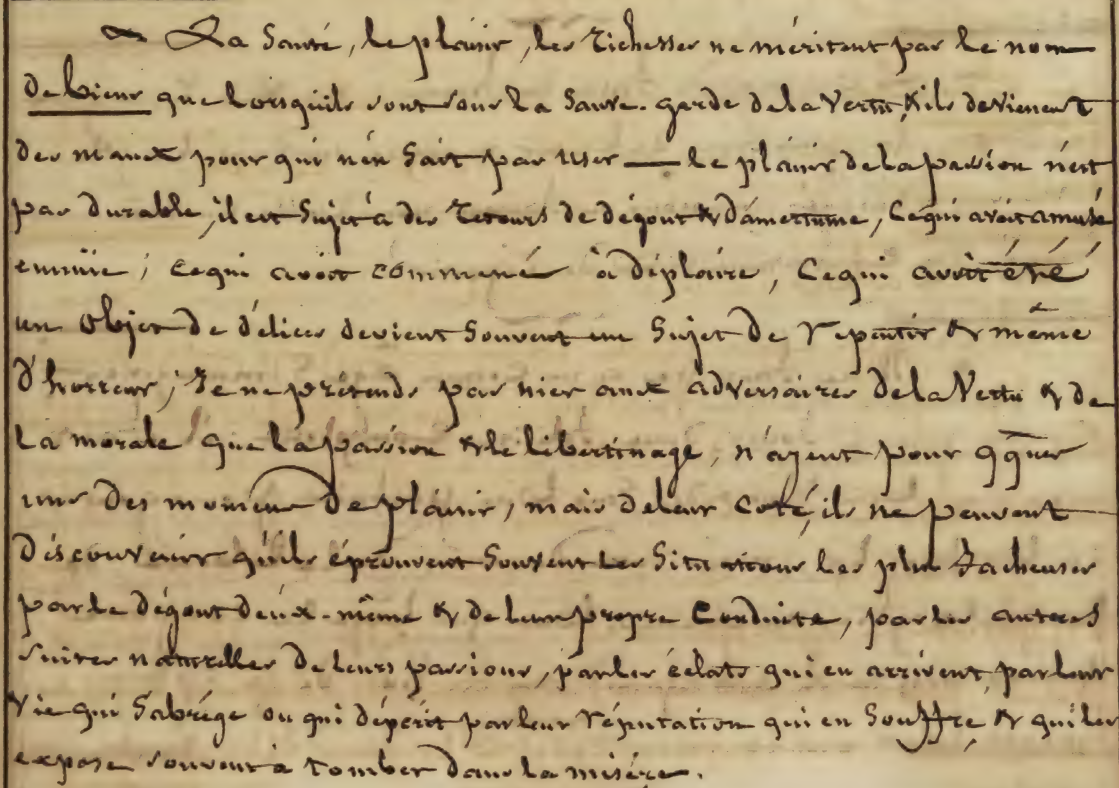 La Santé, le plaisir, les richesses ne méritent pas le nom
de biens que lorsqu'ils sont sous la Sauve-garde de la Vertu, & ils devienent
des maux pour qui n'en Sait pas user — le plaisir de la passion n'est
pas durable, il est Sujet à des retours de dégout & d'amertume, Ce qui avoit amusé
ennüie; Ce qui avoit commencé à déplaire, Ce qui avoit été
un Objet de délices devient Souvent un Sujet de repentir & même
d'horreur; Je ne prétends pas nier aux adversaires de la Vertu & de
la morale que la passion & le libertinage, n'ayent pour qques
uns des momens de plaisir, mais de leur coté, ils ne peuvent
disconvenir qu'ils éprouvent Souvent les Situations les plus facheuses
par le dégout d'eux-même & de leur propre Conduite, par les autres
suites naturelles de leurs passions, par les éclats qui en arrivent par leur
Vie qui S'abrége ou qui dépérit par leur réputation qui en Souffre & qui les
expose souvent à tomber dans la misére.